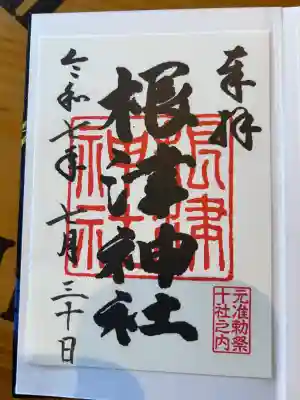 奉拝
根津神社
令和七年七月三十日
根津神社
元准勅祭
十社之内